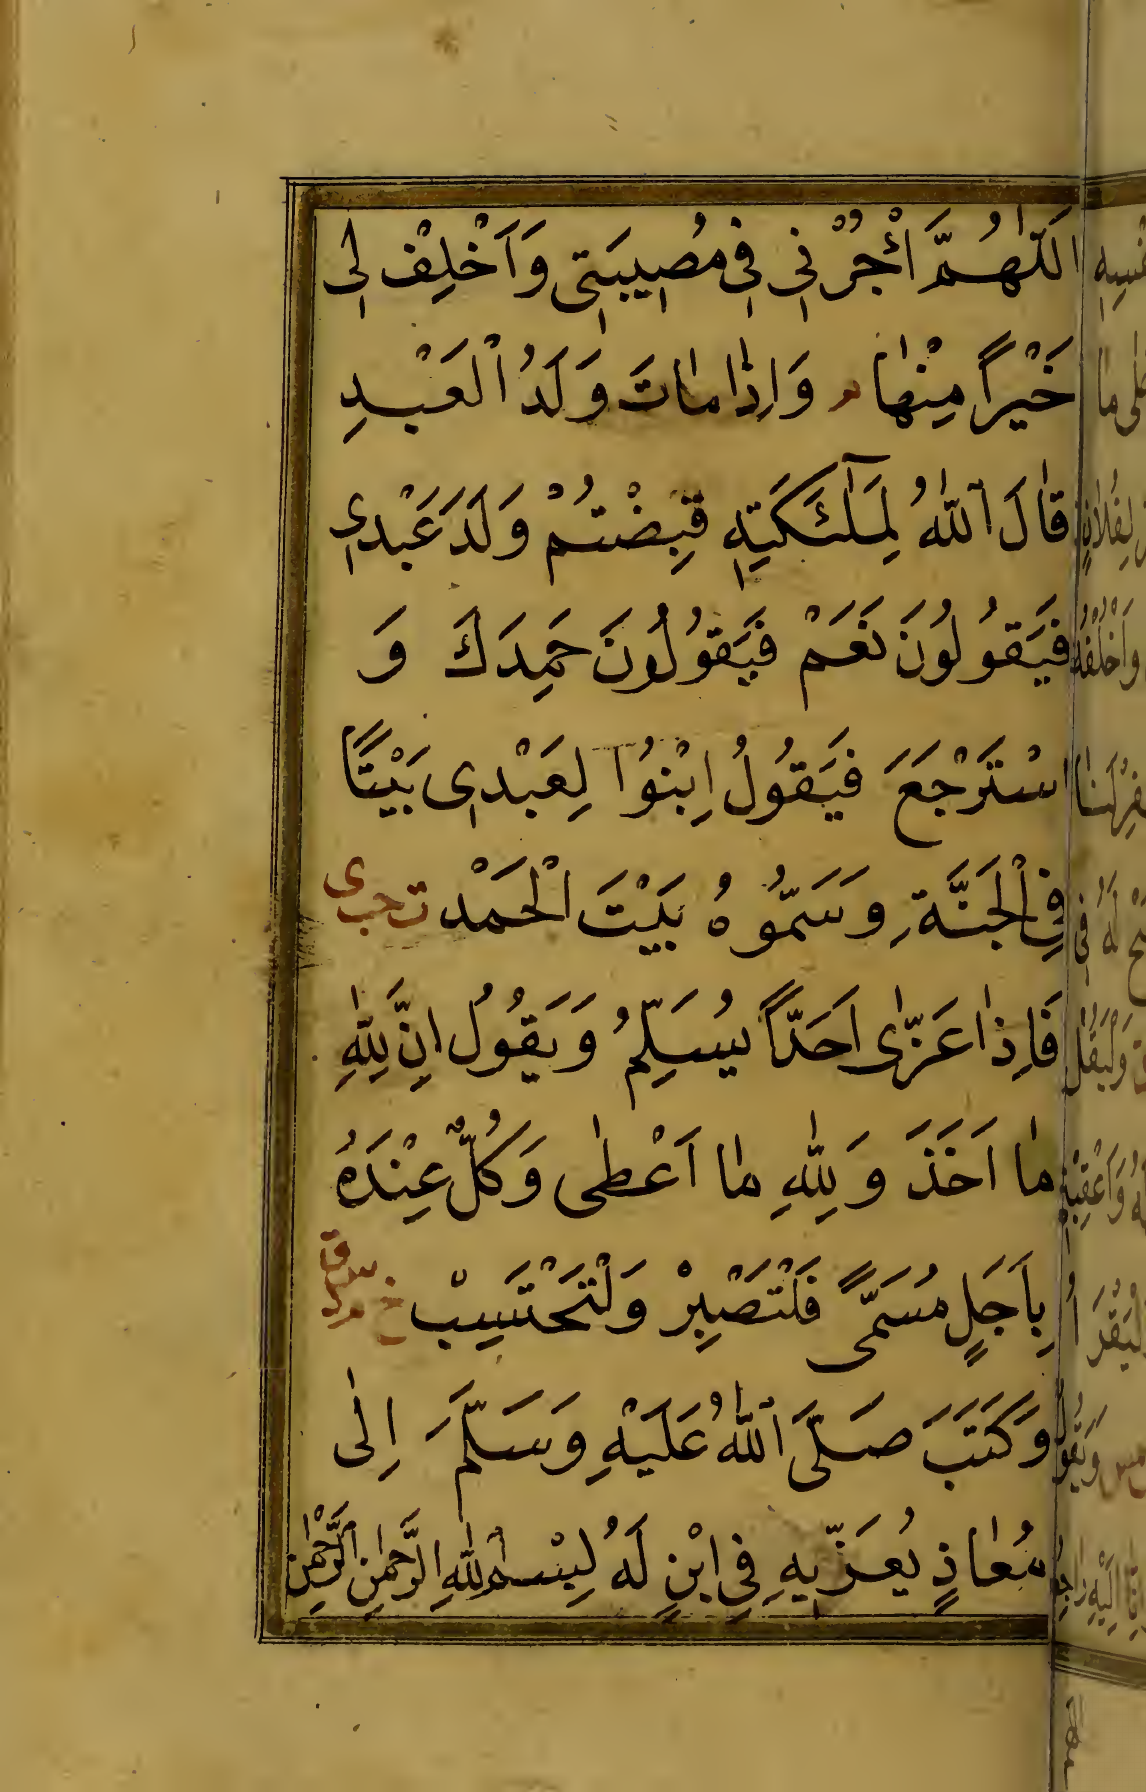 اَللّٰهُمَّ أْجُرْنِي فِي مُصِيبَتِي وَاَخْلِفْ لِي
خَيْرًا مِنْهَا م وَاِذَا مَاتَ وَلَدُ الْعَبْدِ
قَالَ اللّٰهُ لِمَلٰٓئِكَتِهِ قَبِضْتُمْ وَلَدَ عَبْدِي
فَيَقُولُونَ نَعَمْ فَيَقُولُونَ حَمِدَكَ وَ
اسْتَرْجَعَ فَيَقُولُ اِبْنُوا لِعَبْدِي بَيْتًا
فِي الْجَنَّةِ وَسَمُّوهُ بَيْتَ الْحَمْدِ ت حب ى
فَاِذَا عَزّٰى اَحَدًا يُسَلِّمُ وَيَقُولُ اِنَّ لِلّٰهِ
مَا اَخَذَ وَلِلّٰهِ مَا اَعْطٰى وَكُلٌّ عِنْدَهُ
بِاَجَلٍ مُسَمًّى فَلْتَصْبِرْ وَلْتَحْتَسِبْ خ م د س ق
وَكَتَبَ صَلَّى اللّٰهُ عَلَيْهِ وَسَلَّمَ اِلٰى
مُعَاذٍ يُعَزِّيهِ فِي ابْنٍ لَهُ بِسْمِ اللّٰهِ الرَّحْمٰنِ الرَّحْمٰنِ